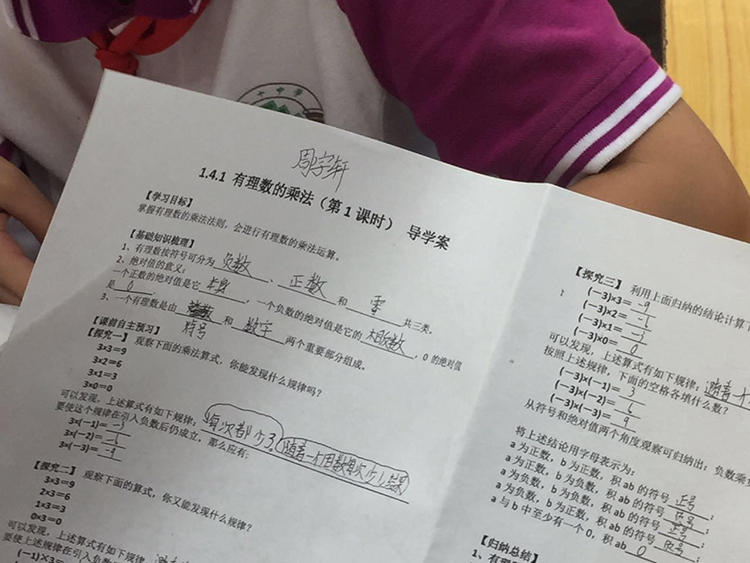 十中学
周宇轩
1.4.1 有理数的乘法（第1课时） 导学案
【学习目标】
掌握有理数的乘法法则，会进行有理数的乘法运算。
【基础知识梳理】
1、有理数按符号可分为 负数 、 正数 和 零 共三类。
2、绝对值的意义：
一个正数的绝对值是它 本身 ，一个负数的绝对值是它的 相反数 ，0 的绝对值
是 0 。
3、一个有理数是由 符号 和 数字 两个重要部分组成。
【课前自主预习】
【探究一】 观察下面的乘法算式，你能发现什么规律吗？
3×3=9
3×2=6
3×1=3
3×0=0
可以发现，上述算式有如下规律： 每次都少3，随着一个因数每次少1，结果
要使这个规律在引入负数后仍成立，那么应有：
3×(−1)= -3
3×(−2)= -6
3×(−3)= -9
【探究二】 观察下面的算式，你又能发现什么规律？
3×3=9
2×3=6
1×3=3
0×3=0
可以发现，上述算式有如下规律：
要使上述规律在引入负数后仍成立，那么应有：
(−1)×3=
【探究三】 利用上面归纳的结论计算
(−3)×3= -9
(−3)×2= -6
(−3)×1= -3
(−3)×0= 0
可以发现，上述算式有如下规律： 随着一
按照上述规律，下面的空格各填什么数？
(−3)×(−1)= 3
(−3)×(−2)= 6
(−3)×(−3)= 9
从符号和绝对值两个角度观察可归纳出：负数乘
将上述结论用字母表示为：
a 为正数，b 为正数，积 ab 的符号 正号 ；
a 为正数，b 为负数，积 ab 的符号 负号 ；
a 为负数，b 为负数，积 ab 的符号 正号 ；
a 为负数，b 为正数，积 ab 的符号 负号 ；
a 与 b 中至少有一个 0，积 ab 0
【归纳总结】
1、有理